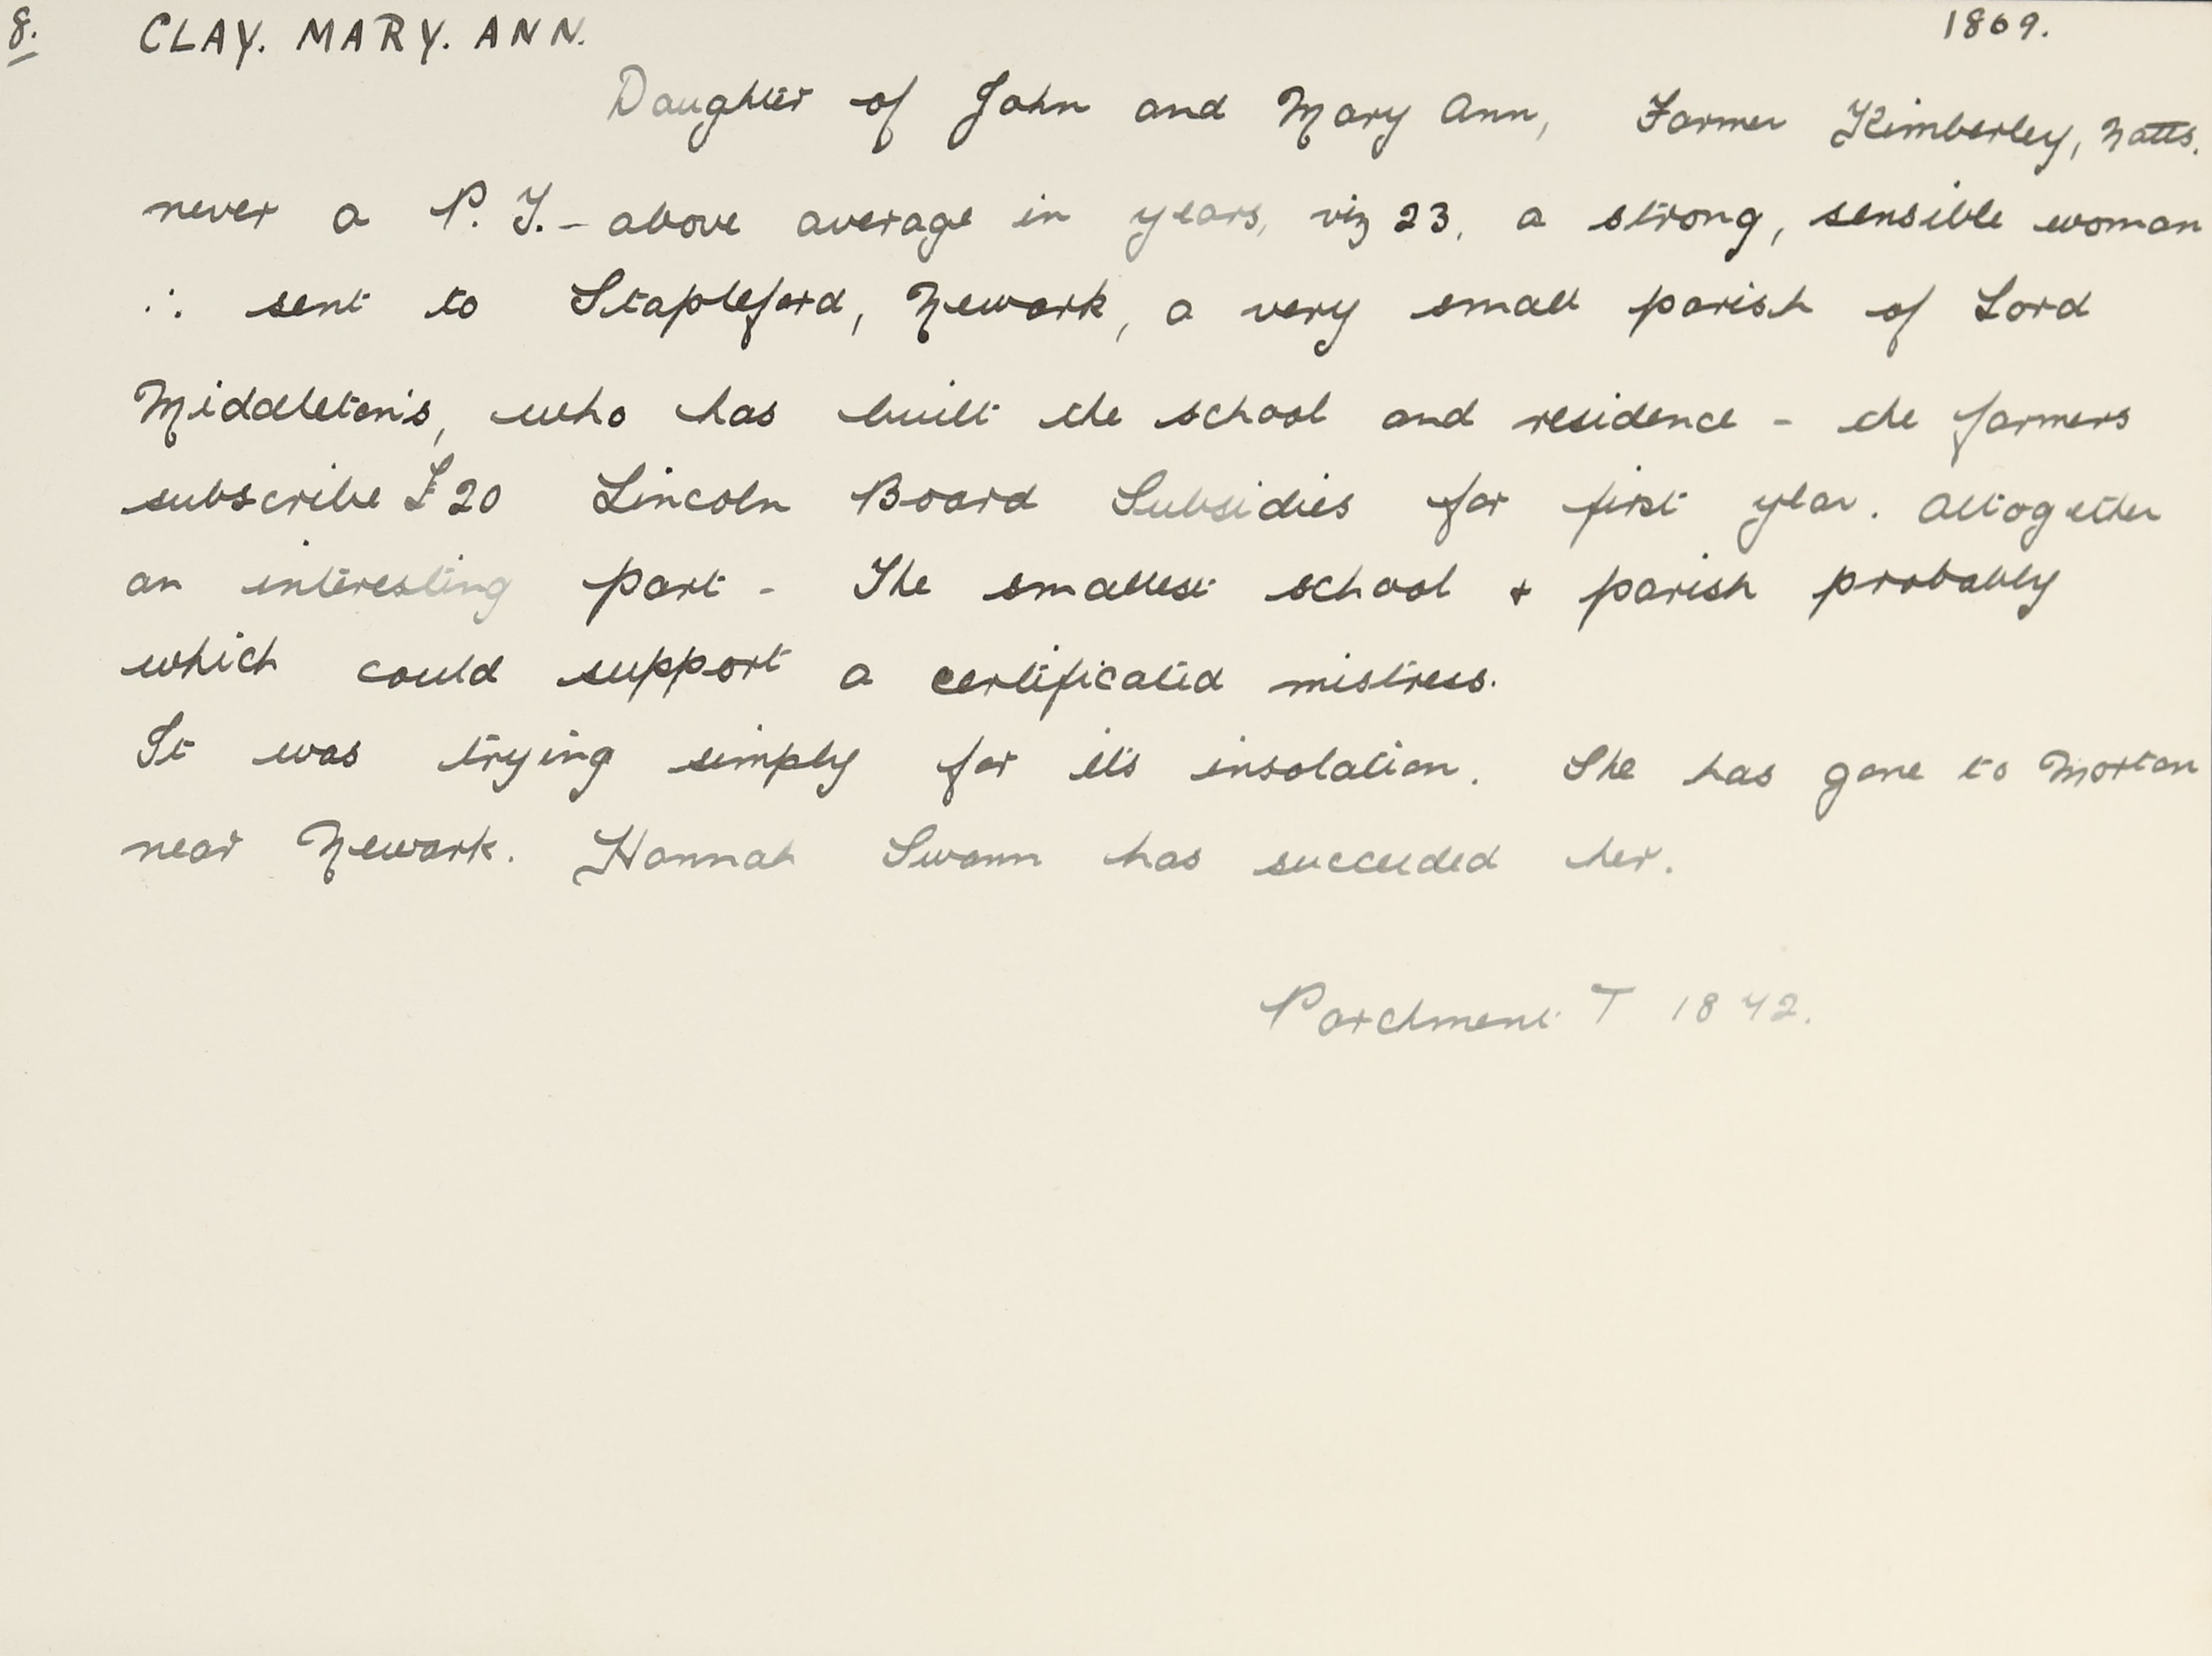 8. CLAY. MARY. ANN. 1869.
Daughter of John and Mary Ann, Farmer Kimberley, Notts.
never a P. T. - above average in years, viz 23, a strong, sensible woman
∴ sent to Stapleford, Newark, a very small parish of Lord
Middleton's, who has built the school and residence - the farmers
subscribe £20 Lincoln Board Subsidies for first year. Altogether
an interesting part - The smallest school + parish probably
which could support a certificated mistress.
It was trying simply for its insolation. She has gone to Morton
near Newark. Hannah Swann has succeeded her.
Parchment T 1842.